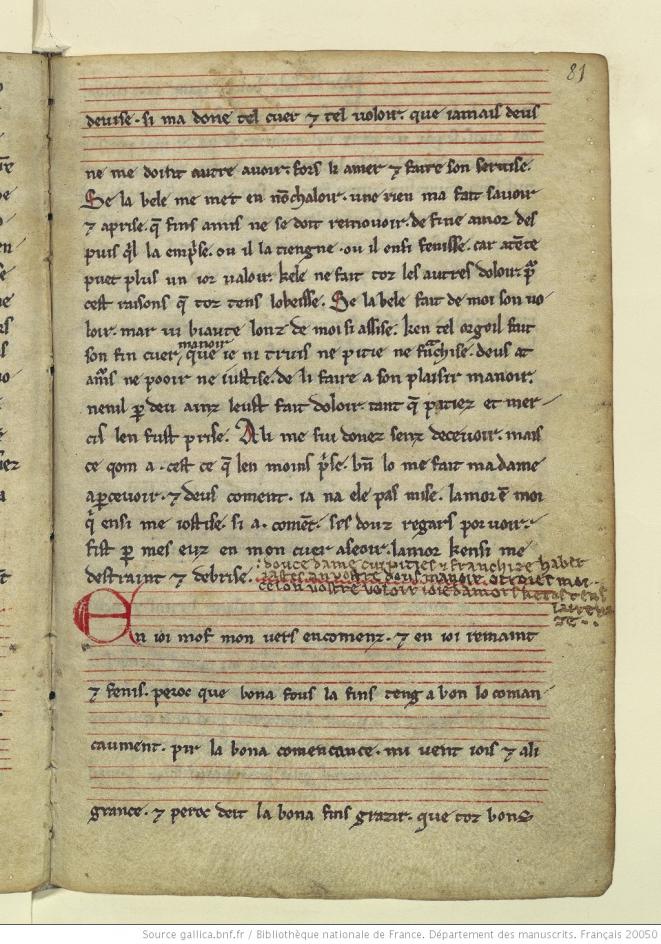 81
deuise. si ma done tel cuer ⁊ tel uoloir. que iamais deus
ne me doint autre auoir. fors li amer ⁊ faire son seruise.
Se la bele me met en nõchaloir. une rien ma fait sauoir
⁊ aprise. q̃ fins amis ne se doit remouoir. de fine amor des
puis qͥl la empͥse. ou il la tiengne. ou il ensi fenisse. car
puet plus un ior ualoir. kele ne fait toz les autres doloir. pͣ
cest raisons q̃ toz tens lobeisse. Se la bele fait de moi son uo
loir. mar ui biaute lonz de moi si assise. ken tel orgoil fait
son fin cuer manoir que ie ni truis ne pitie ne frãchise. deus at
am̃s ne pooir ne iustise. de li faire a son plaisir manoir.
nenil p̱ deu ainz leust fait doloir. tant q̃ pitiez et mer
cis len fust prise. Ali me sui donez senz deceuoir. mais
ce qom a. cest ce q̃ len moins pͥse. bñ lo me fait ma dame
ap̱ceuoir. ⁊ deus coment. ia na ele pas mise. lamor ẽ moi
qͥ ensi me iostise. si a. comẽt. ses douz regars por uoir.
fist p̱ mes euz en mon cuer aseoir. lamor kensi me
destraint ⁊ debrise. : douce dame cui pities ⁊ franchise habet
manoir. moi
celon uostre uoloir ioie damors
En ioi mof mon uers e comenz. ⁊ en ioi remaint
⁊ fenis. peroc que bona fous la fins teng a bon lo coman
caument. pir la bona comencance. mi uent iois ⁊ ali
grance. ⁊ peroc deit la bona fins grazir. que toz bons
Source gallica.bnf.fr / Bibliothèque nationale de France. Département des manuscrits. Français 20050